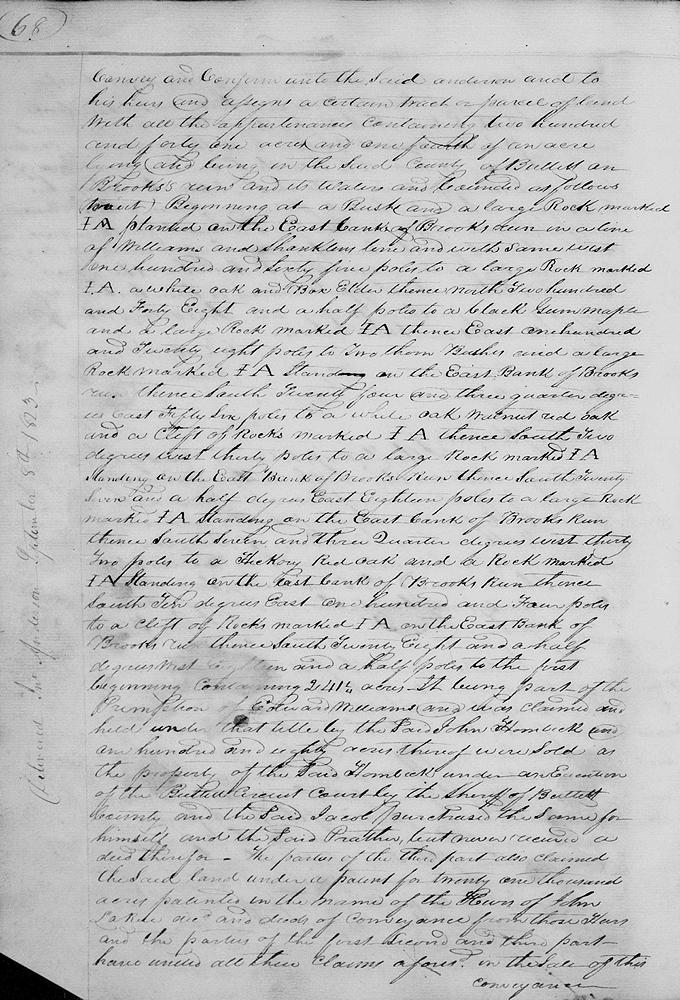 68
Convey and Confirm unto the said anderson and to
his heirs and assigns a certain tract or parcel of land
With all the appurtenances Containing two hundred
and forty one acres and one fourth of an acre
lying and being in the said County of Bullitt on
Brooks's run and its Waters and bounded as follows
(towit) Beginning at a Bush and a large Rock marked
I A planted on the East bank of Brooks Run in a line
of Williams and Shanklins line and with Same West
one hundred and Sixty five poles to a large Rock marked
I.A. a white oak and Box Elder thence North Two hundred
and Forty Eight and a half poles to a black Gum maple
and a large Rock marked I A thence East one hundred
and Twenty eight poles to Two thorn Bushes and a large
Rock marked I A Standing on the East Bank of Brooks
run thence South Twenty four and three quarter degre=
es East Fifty Six poles to a white oak Walnut red oak
and a Cleft of Rocks marked I A thence South Two
degrees west thirty poles to a large Rock marked I A
Standing on the East Bank of Brooks Run thence South Twenty
Seven and a half degrees East Eighteen poles to a large Rock
marked I A Standing on the East bank of Brooks Run
thence South Seven and three Quarter degrees west thirty
Two poles to a Hickory Red oak and a Rock marked
I A Standing on the East bank of Brooks Run thence
South Ten degrees East one hundred and Four poles
to a Cleft of Rocks marked I A on the East Bank of
Brooks run thence South Twenty Eight and a half
degrees West Eighteen and a half poles to the first
beginning Containing 241¼ acres. It being part of the
Premption of Edward Williams and was claimed and
held under that title by the Said John Hornbeck and
one hundred and eighty acres thereof were Sold as
the property of the Said Hornbeck under an Execution
of the Bullitt Circuit Court by the Sheriff of Bullitt
County and the Said Jacob purchased the Same for
himself and the Said Prather, but never received a
deed therefor - The parties of the third part also claimed
the Said land under a patent for twenty one thousand
acres patented in the name of the Heirs of John
decd and deeds of Conveyance from those Heirs
and the parties of the first Second and third part
have united all their Claims afores.d in the Sale of this
conveyance
Delivered Anderson September 8th 1823